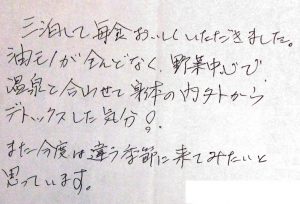 三泊して毎食おいしくいただきました。
油モノが全んどなく、野菜中心で
温泉と合わせて身体の内外から
デトックスした気分!。
また今度は違う季節に来てみたいと
思っています。